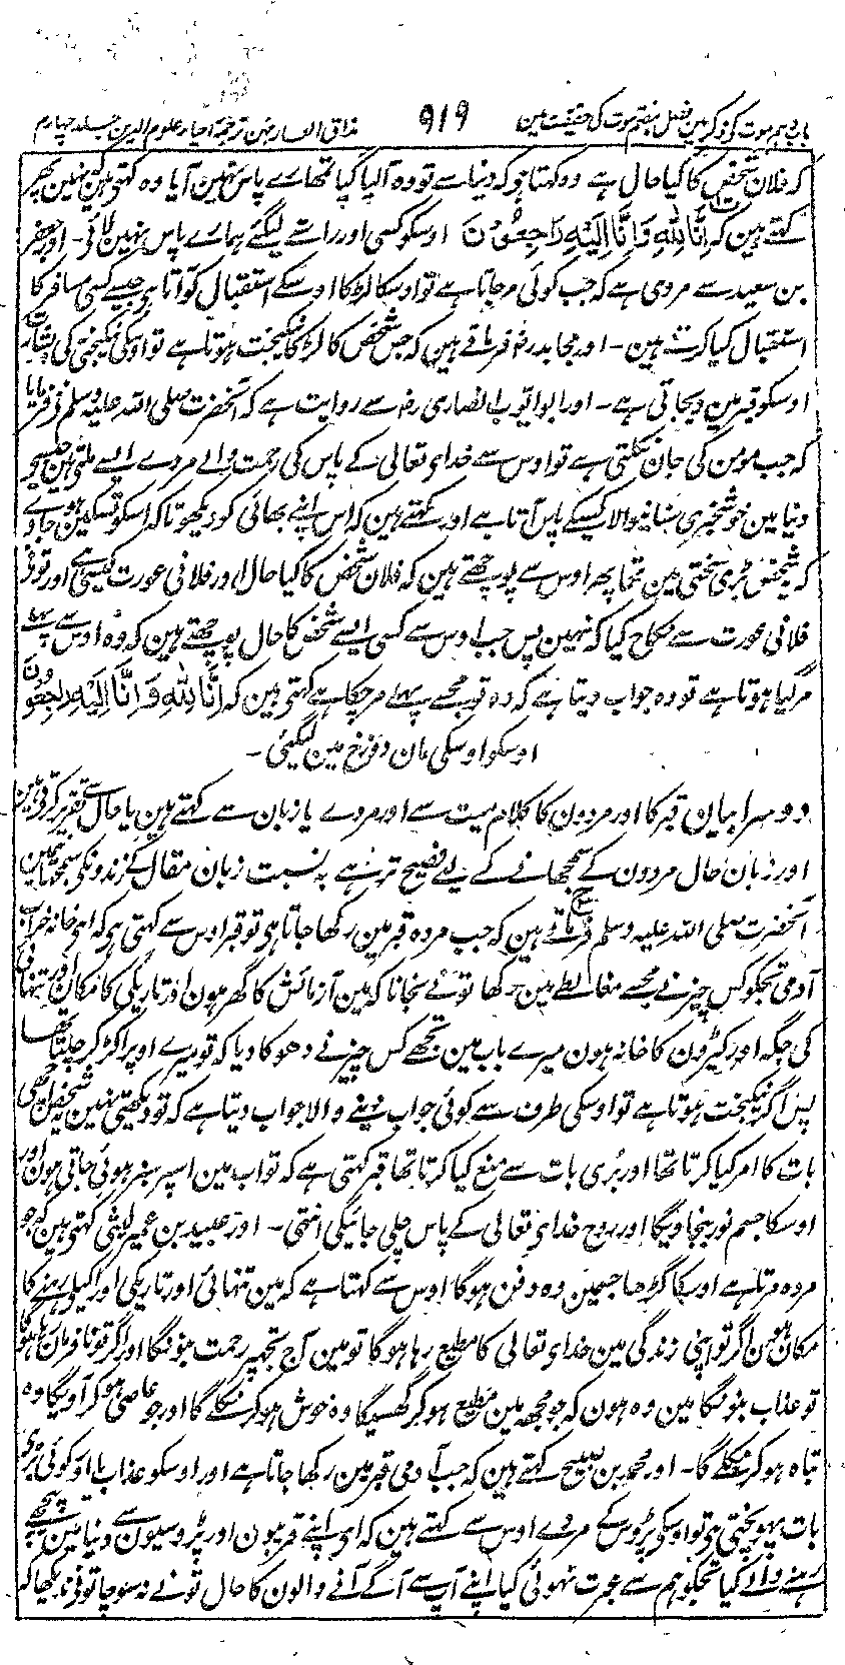 باب دہم موت کے ذکر مین فصل ہفتم موت کی حقیقت مین ۹۱۹ مذاق العارفین ترجمۂ احیاء علوم الدین جلد چہارم
کہ فلان شخص کا کیا حال ہے وہ کہتا ہی کہ دنیا سے تو وہ آلیا کیا تمھارے پاس نہین آیا وہ کہتی ہین کہ نہین پھر
کہتے ہین کہ اِنَّا لِلّٰهِ وَاِنَّا اِلَيْهِ رَاجِعُوْنَ اوسکو کسی اور راستے لیگئے ہمارے پاس نہین لائی۔ اور جعفر
بن سعید سے مروی ہے کہ جب کوئی مرجاتا ہے تو اوسکا لڑکا اوسکے استقبال کو آتا ہی جیسے کسی مسافر کا
استقبال کیا کرتے ہین۔ اور مجاہد رح فرماتے ہین کہ جس شخص کا لڑکا نیکبخت ہوتا ہے تو اوسکی نیکبختی کی بشارت
اوسکو قبر مین دیجاتی ہے۔ اور ابو ایوب انصاری رض سے روایت ہے کہ آنحضرت صلی اللہ علیہ وسلم نے فرمایا
کہ جب مومن کی جان نکلتی ہے تو اوس سے خدای تعالی کے پاس کی رحمت والے مردے ایسے ملتی ہین جیسے
دنیا مین خوشخبری سنانیوالا کسیکے پاس آتا ہے اور کہتے ہین کہ اس اپنے بھائی کو دیکھو تا کہ اسکو تسکین ہو جاوے
کہ یہ شخص بڑی سختی مین تھا پھر اوس سے پوچھتے ہین کہ فلان شخص کا کیا حال اور فلانی عورت کیسی ہے اور تونے
فلانی عورت سے نکاح کیا کہ نہین پس جب اوس سے کسی ایسے شخص کا حال پوچھتے ہین کہ وہ اوس سے پہلے
مرگیا ہوتا ہے تو وہ جواب دیتا ہے کہ وہ تو مجھسے پہلے مرچکا ہے کہتی ہین کہ اِنَّا لِلّٰهِ وَاِنَّا اِلَيْهِ رَاجِعُوْنَ
اوسکو اوسکی مان دوزخ مین لیگئی۔
دوسرا بیان قبر کا اور مردون کا کلام میت سے اور مردے یا زبان سے کہتے ہین یا حال سے تقریر کرتی ہین
اور زبان حال مردون کے سمجھانے کے لیے فصیح تر ہے بہ نسبت زبان مقال کے زندونکی سمجھانیمین
آنحضرت صلی اللہ علیہ وسلم فرماتے ہین کہ جب مردہ قبر مین رکھا جاتا ہی تو قبر اوس سے کہتی ہی کہ ای خانہ خراب
آدمی تجکو کس چیز نے مجھسے مغالطے مین رکھا تونے نجانا کہ مین آزمائش کا گھر ہون اور تاریکی کا مکان اور تنہائی
کی جگہ اور کیڑون کا خانہ ہون میرے باب مین تجھے کس چیز نے دھوکا دیا کہ تو میرے اوپر اکڑ کر چلتا تھا
پس اگر نیکبخت ہوتا ہے تو اوسکی طرف سے کوئی جواب دینے والا جواب دیتا ہے کہ تو دیکھتی نہین یہ شخص اچھی
بات کا امر کیا کرتا تھا اور بُری بات سے منع کیا کرتا تھا قبر کہتی ہے کہ تو اب مین اسپر سبز ہوئی جاتی ہون اور
اوسکا جسم نور بنجاویگا اور روح خدای تعالی کے پاس چلی جائیگی انتہی۔ اور عبید بن عمیر لیثی کہتی ہین کہ جو
مردہ مرتا ہے اوسکا گڑھا جسمین وہ دفن ہوگا اوس سے کہتا ہے کہ مین تنہائی اور تاریکی اور اکیلے رہنے کا
مکان ہون اگر تو اپنی زندگی مین خدای تعالی کا مطیع رہا ہوگا تو مین آج تجھپر رحمت بنونگا اور اگر تو نافرمان رہا ہوگا
تو عذاب بنونگا مین وہ ہون کہ جو مجھ مین مطیع ہوکر گھسیگا وہ خوش ہوکر نکلے گا اور جو عاصی ہوکر آویگا وہ
تباہ ہوکر نکلے گا۔ اور محمد بن صبیح کہتے ہین کہ جب آدمی قبر مین رکھا جاتا ہے اور اوسکو عذاب یا اور کوئی بُری
بات پہونچتی ہی تو اوسکی پڑوس کے مردے اوس سے کہتے ہین کہ ای اپنے قریبون اور پڑوسیون سے دنیا مین پیچھے
رہنے والے کیا تجکو ہم سے عبرت نہوئی کیا اپنے آپ سے آگے آنے والون کا حال تونے نہ سوچا تونے ندیکھا کہ